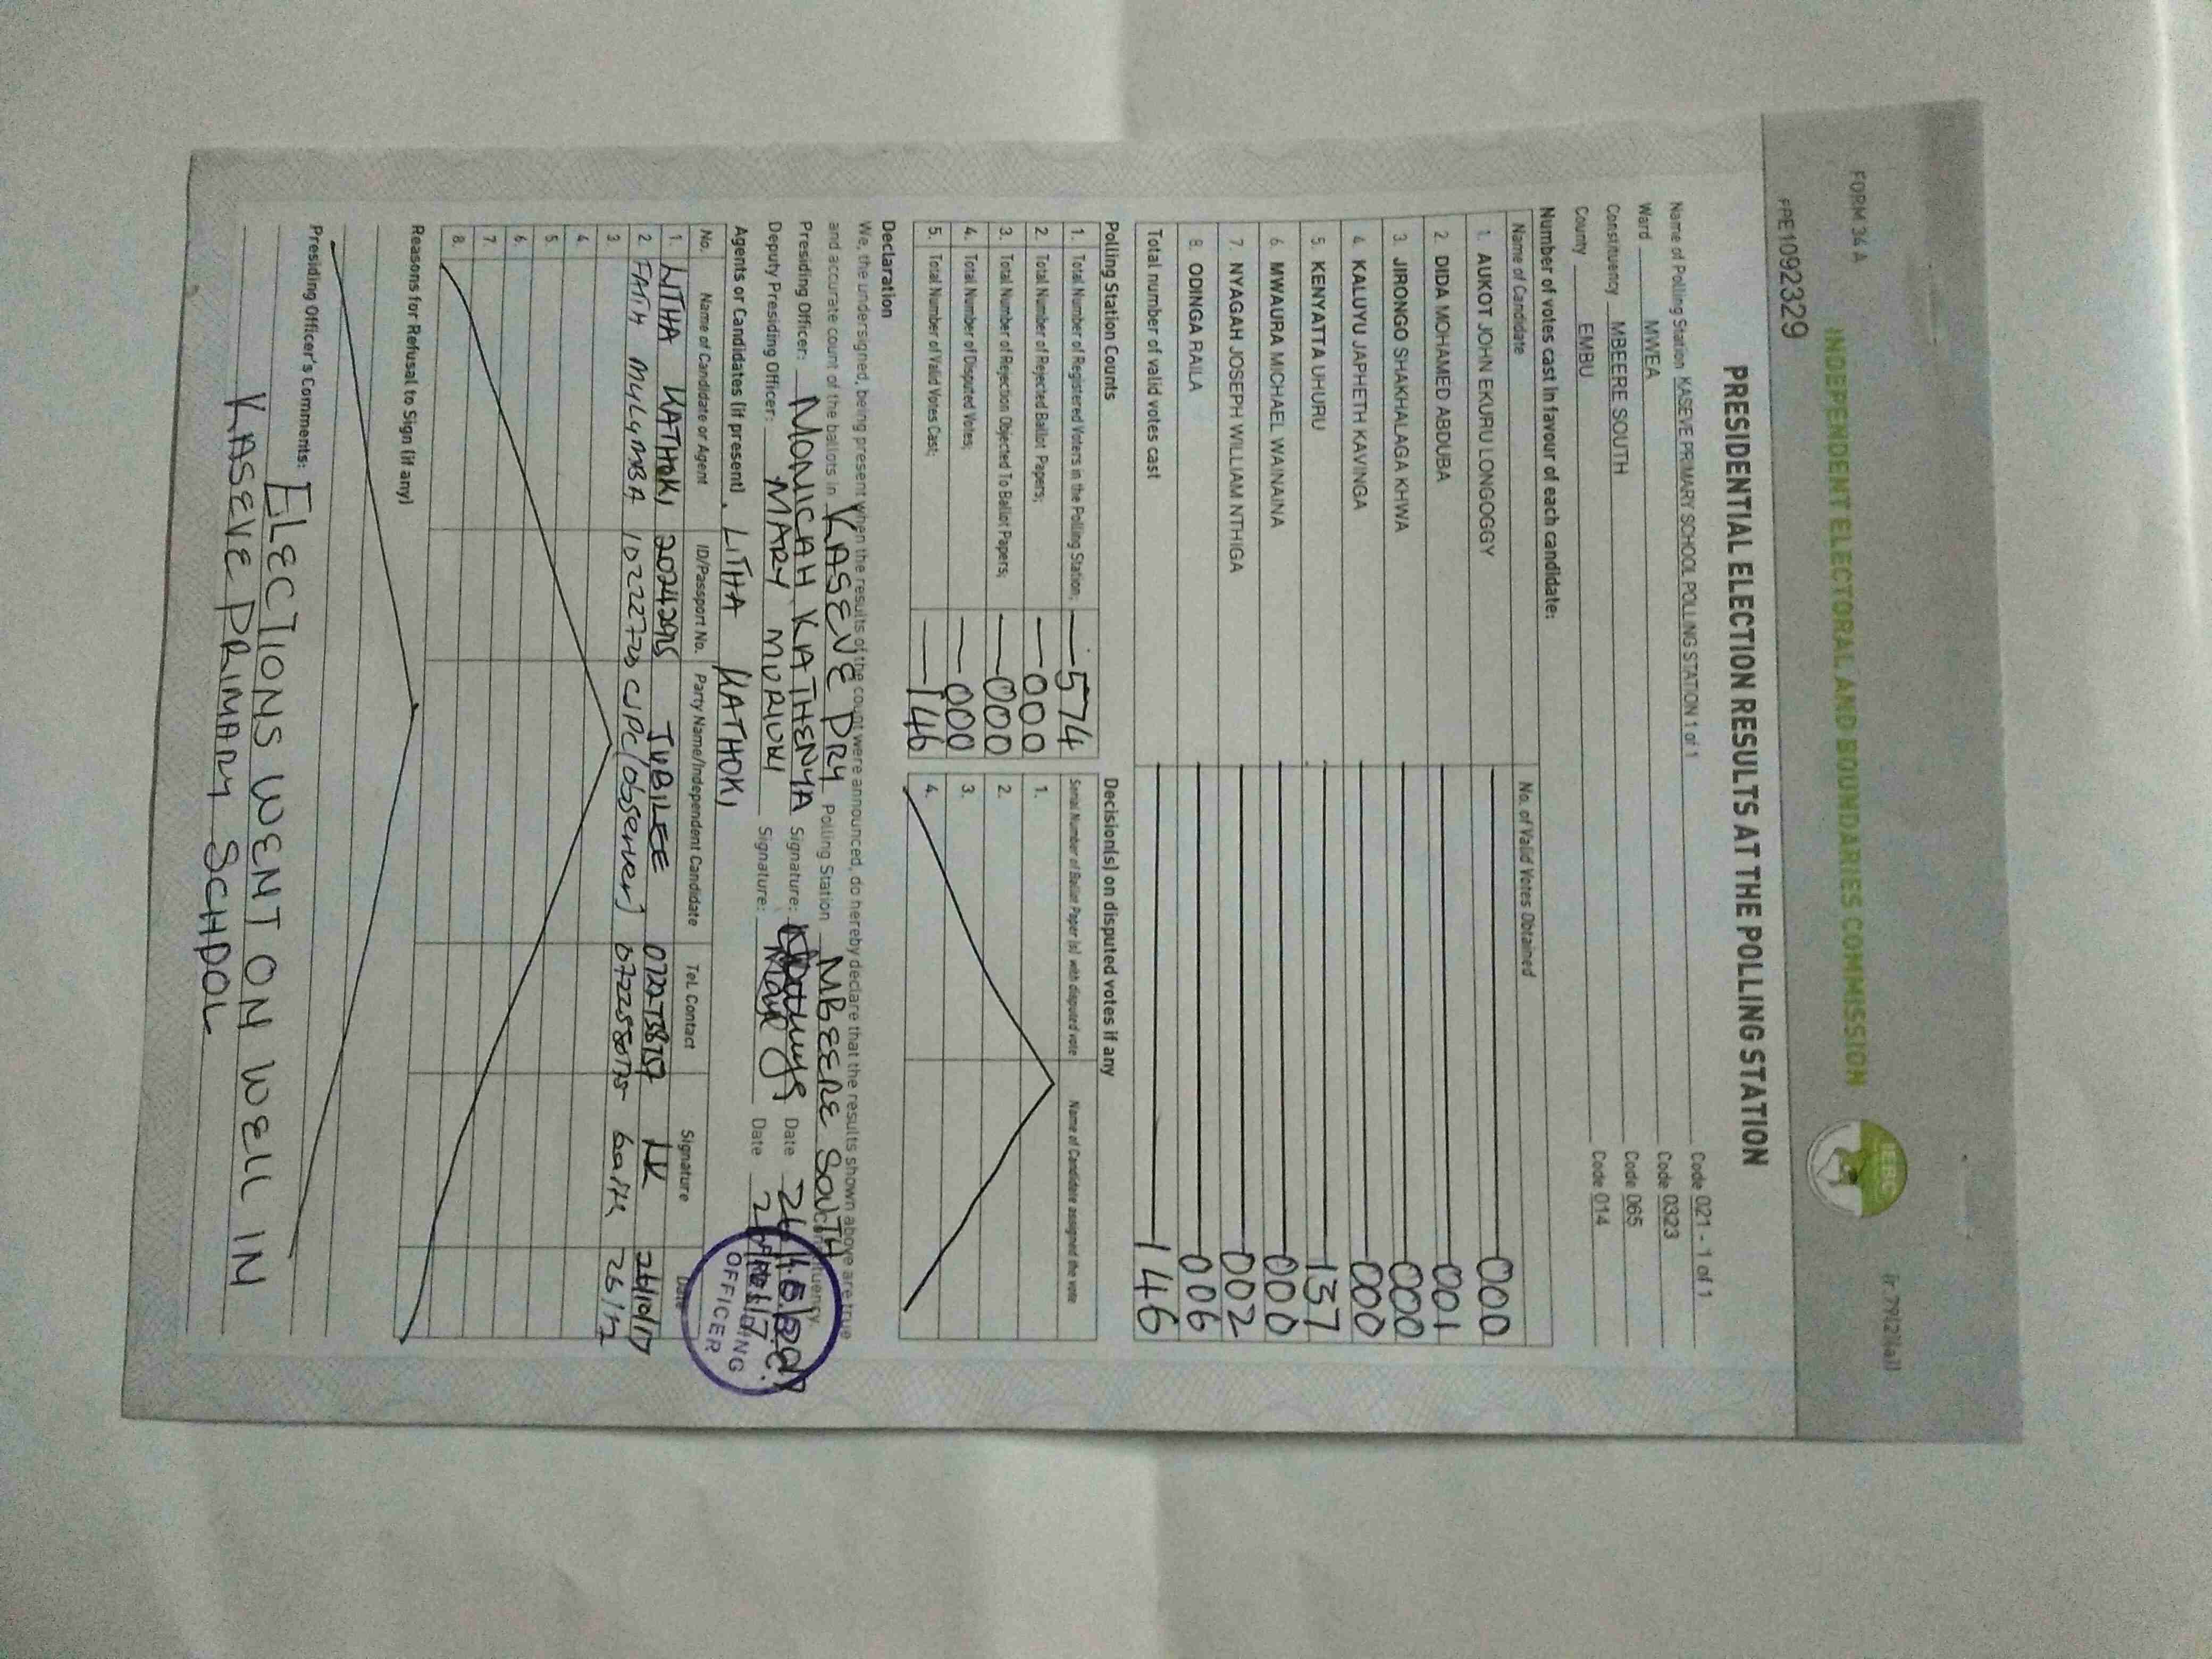 FORM 34 A
INDEPENDENT ELECTORAL AND BOUNDARIES COMMISSION
IEBC
PRE1092329
PRESIDENTIAL ELECTION RESULTS AT THE POLLING STATION
Name of Polling Station KASEVE PRIMARY SCHOOL POLLING STATION 1 of 1 Code 021 - 1 of 1
Ward MWEA Code 0323
Constituency MBEERE SOUTH Code 065
County EMBU Code 014
Number of votes cast in favour of each candidate:
Name of Candidate No. of Valid Votes Obtained
1. AUKOT JOHN EKURU LONGOGGY 000
2. DIDA MOHAMED ABDUBA 001
3. JIRONGO SHAKHALAGA KHWA 000
4. KALUYU JAPHETH KAVINGA 000
5. KENYATTA UHURU 137
6. MWAURA MICHAEL WAINAINA 000
7. NYAGAH JOSEPH WILLIAM NTHIGA 002
8. ODINGA RAILA 006
Total number of valid votes cast 146
Polling Station Counts Decision(s) on disputed votes if any
1. Total Number of Registered Voters in the Polling Station; 574 Serial Number of Ballot Paper (s) with disputed vote Name of Candidate assigned the vote
2. Total Number of Rejected Ballot Papers; 000 1.
3. Total Number of Rejection Objected To Ballot Papers; 000 2.
4. Total Number of Disputed Votes; 000 3.
5. Total Number of Valid Votes Cast; 146 4.
Declaration
We, the undersigned, being present when the results of the count were announced, do hereby declare that the results shown above are true
and accurate count of the ballots in KASEVE PRY Polling Station MBEERE SOUTH
Presiding Officer: MONICAH KATHENYA Signature: Date
Deputy Presiding Officer: MARY MURIUKI Signature: Date
OFFICER
Agents or Candidates (if present). LITHA KATHOKI
No. Name of Candidate or Agent ID/Passport No. Party Name/Independent Candidate Tel. Contact Signature Date
1. LITHA KATHOKI JUBILEE LK 26/10/17
2. FAITH CJPC (observer)
3.
4.
5.
6.
7.
8.
Reasons for Refusal to Sign (if any)
Presiding Officer's Comments: ELECTIONS WENT ON WELL IN
KASEVE PRIMARY SCHOOL